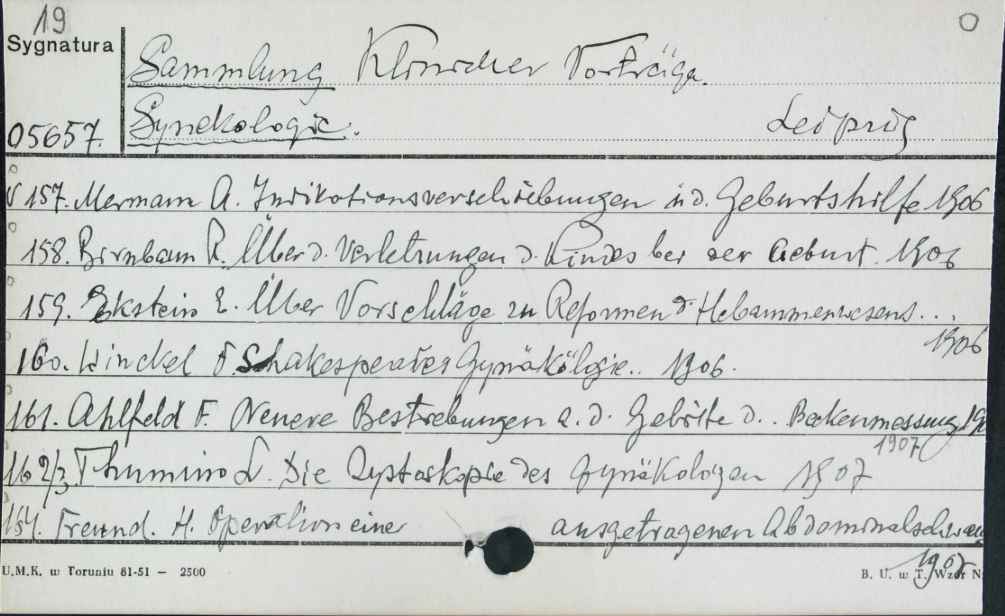 19
Sygnatura
Sammlung Klinischer Vorträge.
05657. Gynekologie. Leipzig
157. Mermann A. Indikationsverschiebungen i. d. Geburtshilfe 1906
158. Birnbaum R. Über d. Verletzungen d. Kindes bei der Geburt. 1906
159. Ekstein E. Über Vorschläge zu Reformen d. Hebammenwesens...
1906
160. Winckel F. Shakespeares Gynäkologie.. 1906.
161. Ahlfeld F. Neuere Bestrebungen a. d. Gebiete d.. Beckenmessung 190
1907
162/3 Thumim L. Die Zystoskopie des Gynäkologen 1907
164. Freund. H. Operation eine ausgetragenen Abdominalschwang
1907
U.M.K. w Toruniu 61-51 — 2500 B. U. w T. Wzór N